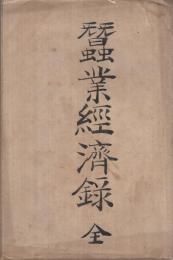 蠶業經濟錄 全